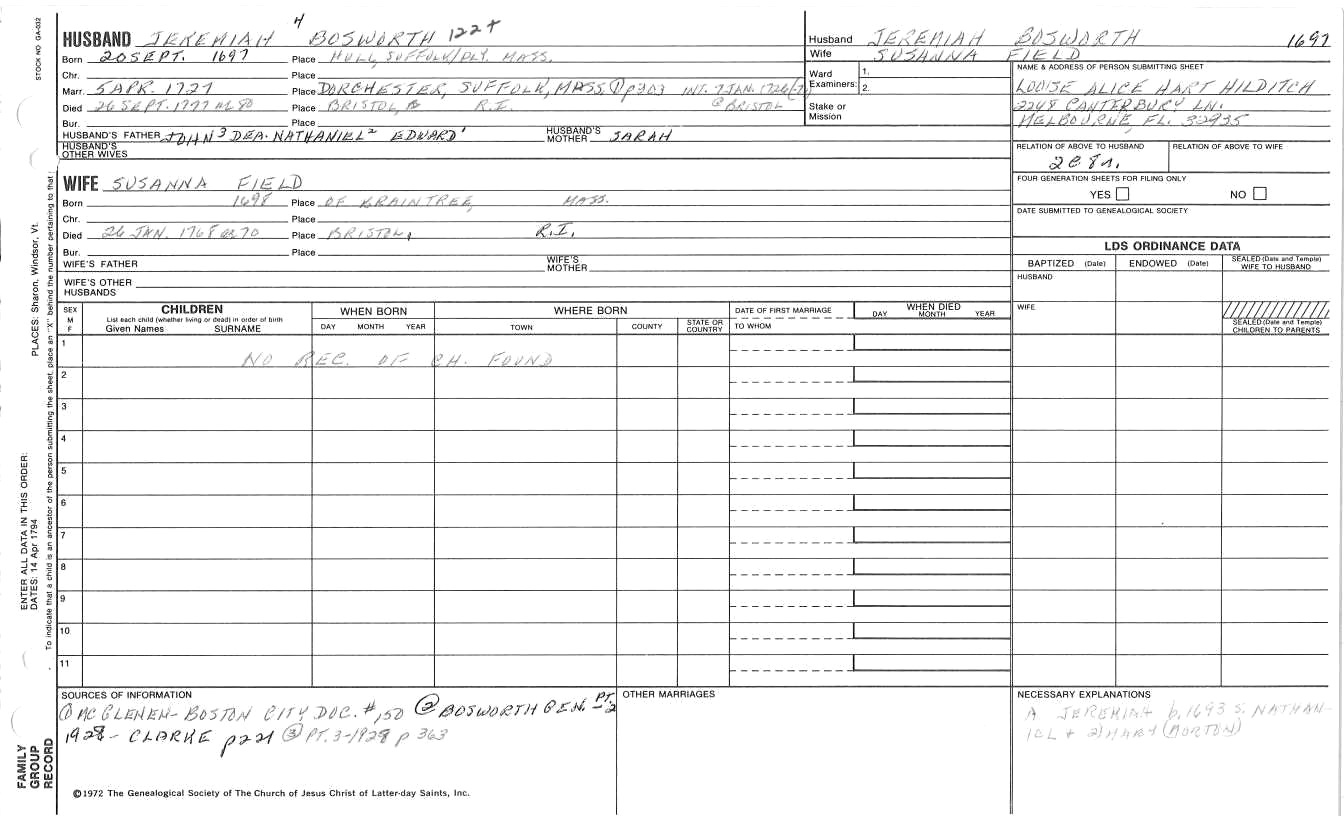 STOCK NO GA-032
HUSBAND JEREMIAH 4 BOSWORTH 122+
Born 20 SEPT. 1697 Place HULL, SUFFOLK/PLY. MASS.
Chr. Place
Marr. 5 APR. 1727 Place DORCHESTER, SUFFOLK, MASS. ① p303 INT. 7 JAN. 1726/7
Died 26 SEPT. 1777 Place BRISTOL, R.I. @ BRISTOL
Bur. Place
HUSBAND'S FATHER JOHN 3 DEA. NATHANIEL 2 EDWARD 1 HUSBAND'S MOTHER SARAH
HUSBAND'S OTHER WIVES
Husband JEREMIAH BOSWORTH 1697
Wife SUSANNA FIELD
Ward Examiners: 1. 2.
Stake or Mission
NAME & ADDRESS OF PERSON SUBMITTING SHEET
LOUISE ALICE HART HILDITCH
2248 CANTERBURY LN.
MELBOURNE, FL. 32935
RELATION OF ABOVE TO HUSBAND RELATION OF ABOVE TO WIFE
FOUR GENERATION SHEETS FOR FILING ONLY
YES NO
DATE SUBMITTED TO GENEALOGICAL SOCIETY
WIFE SUSANNA FIELD
Born 1698 Place OF BRAINTREE, MASS.
Chr. Place
Died 26 JAN. 1768 or 70 Place BRISTOL, R.I.
Bur. Place
WIFE'S FATHER WIFE'S MOTHER
WIFE'S OTHER HUSBANDS
LDS ORDINANCE DATA
BAPTIZED (Date) ENDOWED (Date) SEALED (Date and Temple) WIFE TO HUSBAND
HUSBAND
WIFE
SEALED (Date and Temple) CHILDREN TO PARENTS
SEX M F
CHILDREN
List each child (whether living or dead) in order of birth
Given Names SURNAME
WHEN BORN
DAY MONTH YEAR
WHERE BORN
TOWN COUNTY STATE OR COUNTRY
DATE OF FIRST MARRIAGE
TO WHOM
WHEN DIED
DAY MONTH YEAR
1 NO REC. OF CH. FOUND
2
3
4
5
6
7
8
9
10
11
SOURCES OF INFORMATION
① McGLENEN - BOSTON CITY DOC. #150 ② BOSWORTH GEN. PT. 2
1928 - CLARKE p221 ③ PT. 3-1928 p 363
OTHER MARRIAGES
NECESSARY EXPLANATIONS
A JEREMIAH b. 1693 S. NATHAN-
IEL + 2) MARY (MORTON)
©1972 The Genealogical Society of The Church of Jesus Christ of Latter-day Saints, Inc.
FAMILY GROUP RECORD
ENTER ALL DATA IN THIS ORDER:
DATES: 14 Apr 1794
PLACES: Sharon, Windsor, Vt.
To indicate that a child is an ancestor of the person submitting the sheet, place an "X" behind the number pertaining to that